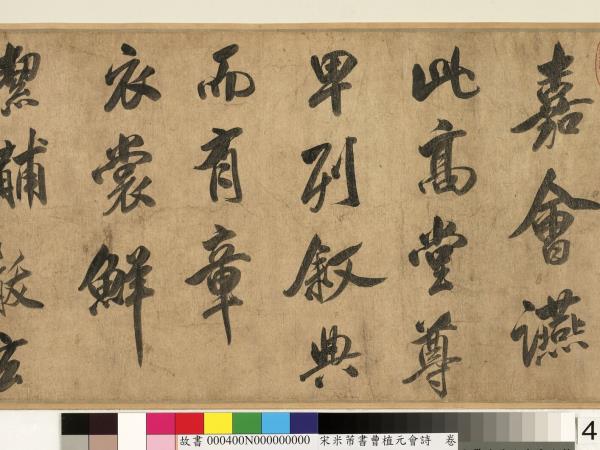 嘉會讌
此高堂尊
卑列叙典
而有章
衣裳鮮
潔黼黻玄
故書 000400N000000000 宋米芾書曹植元會詩 卷
4